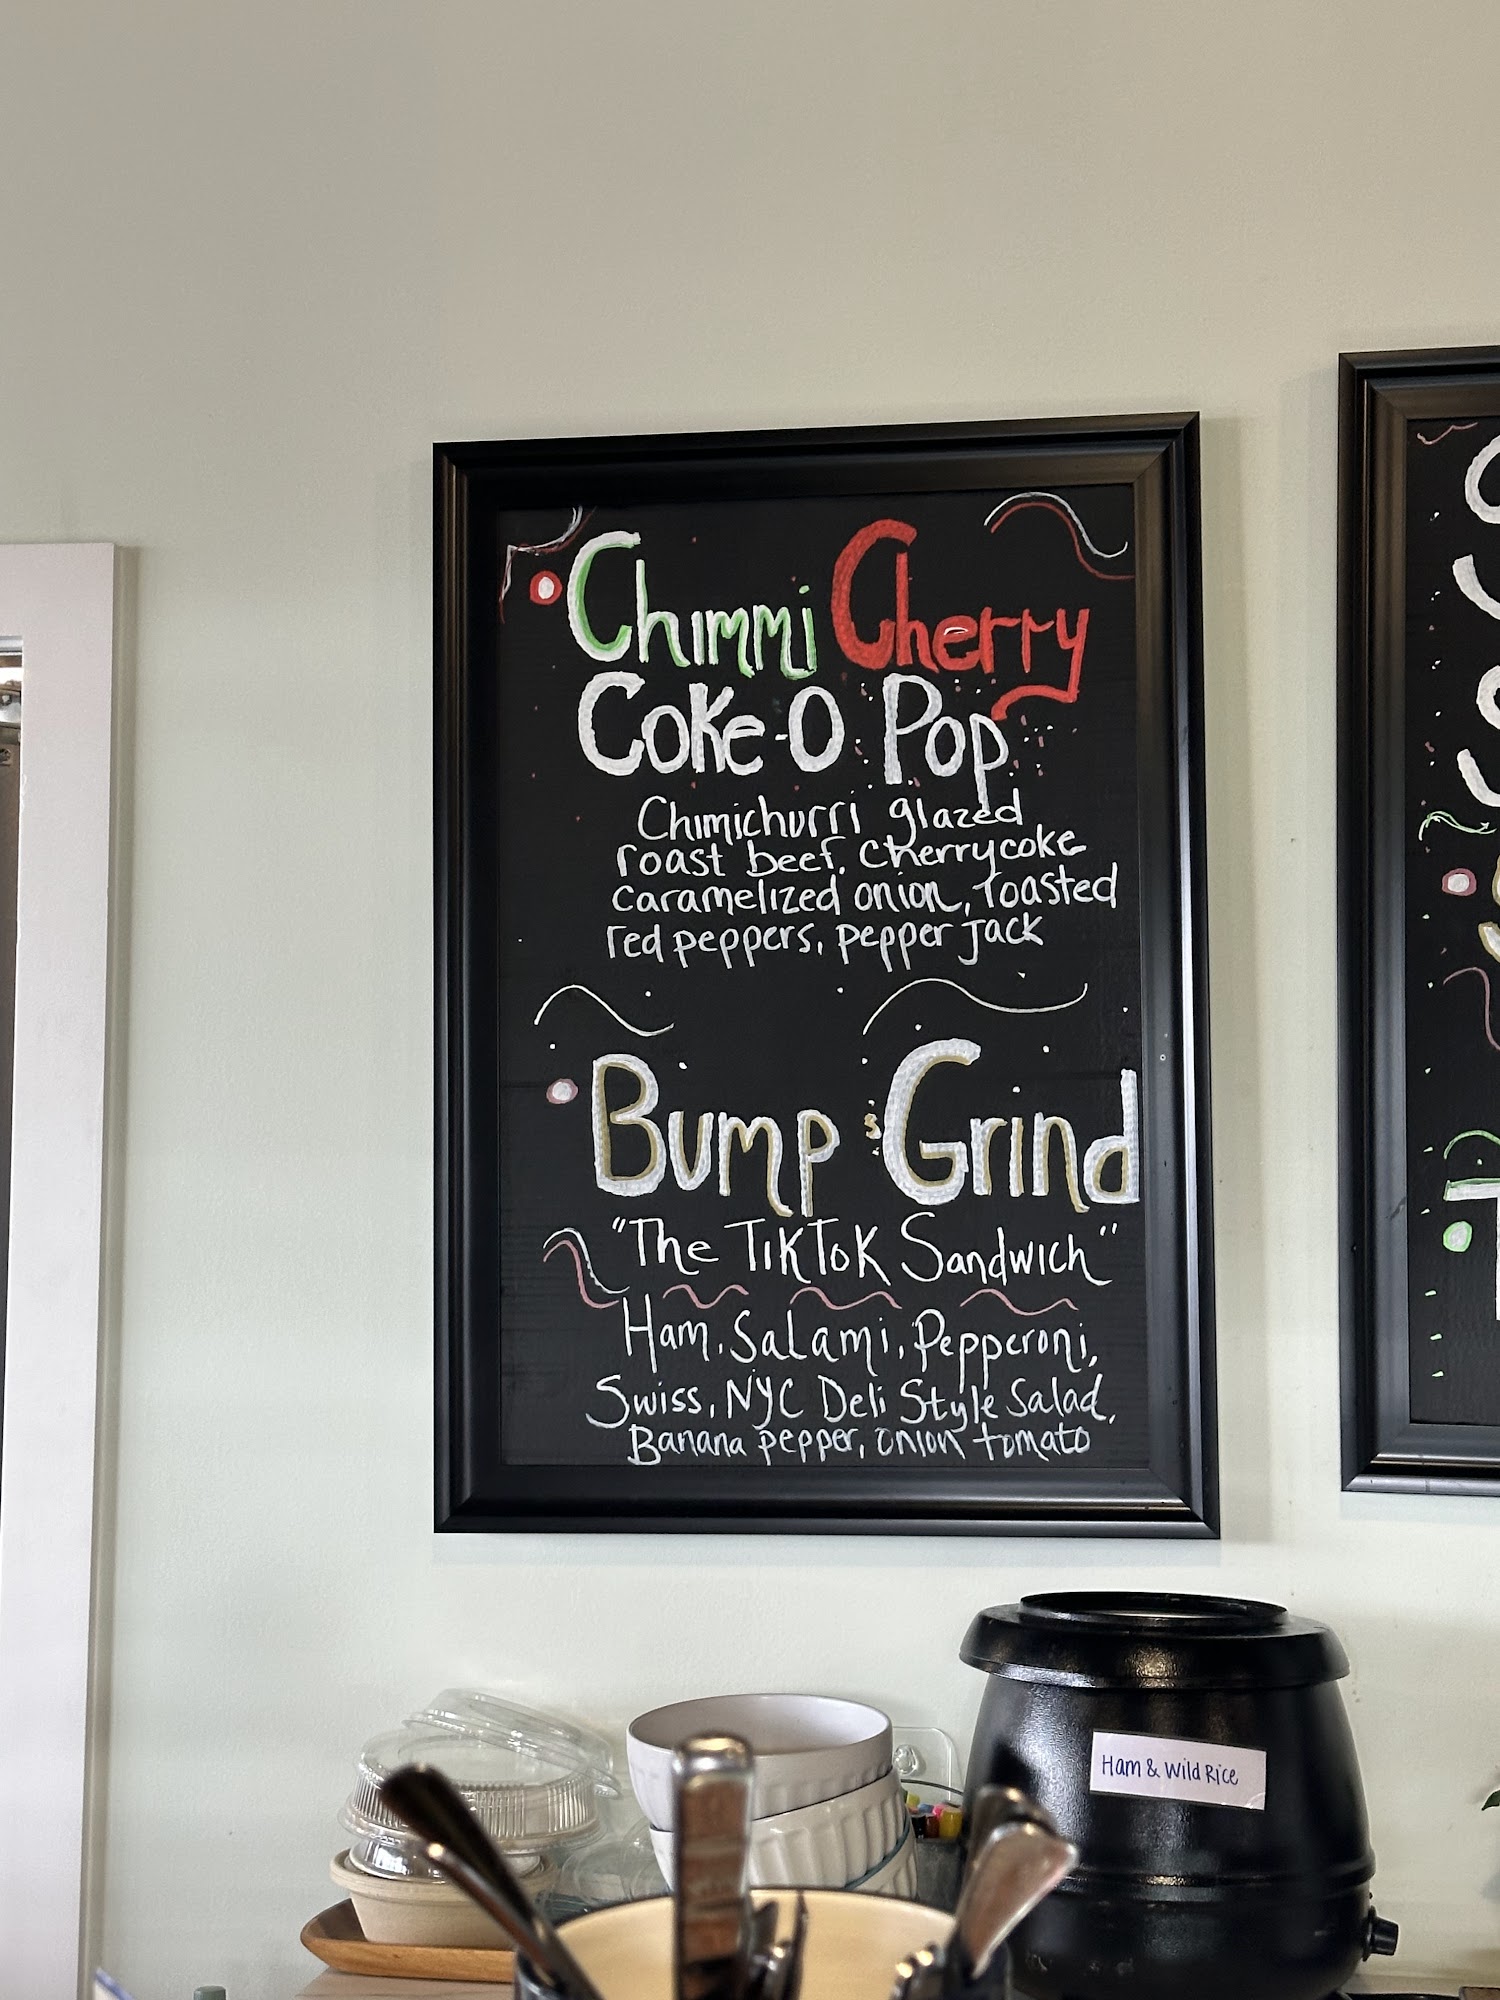 Chimmi Cherry
Coke-O Pop
Chimichurri glazed
roast beef, cherrycoke
caramelized onion, roasted
red peppers, pepper jack
Bump & Grind
"The TikTok Sandwich"
Ham, Salami, Pepperoni,
Swiss, NYC Deli Style Salad,
Banana pepper, onion tomato
Ham & Wild Rice